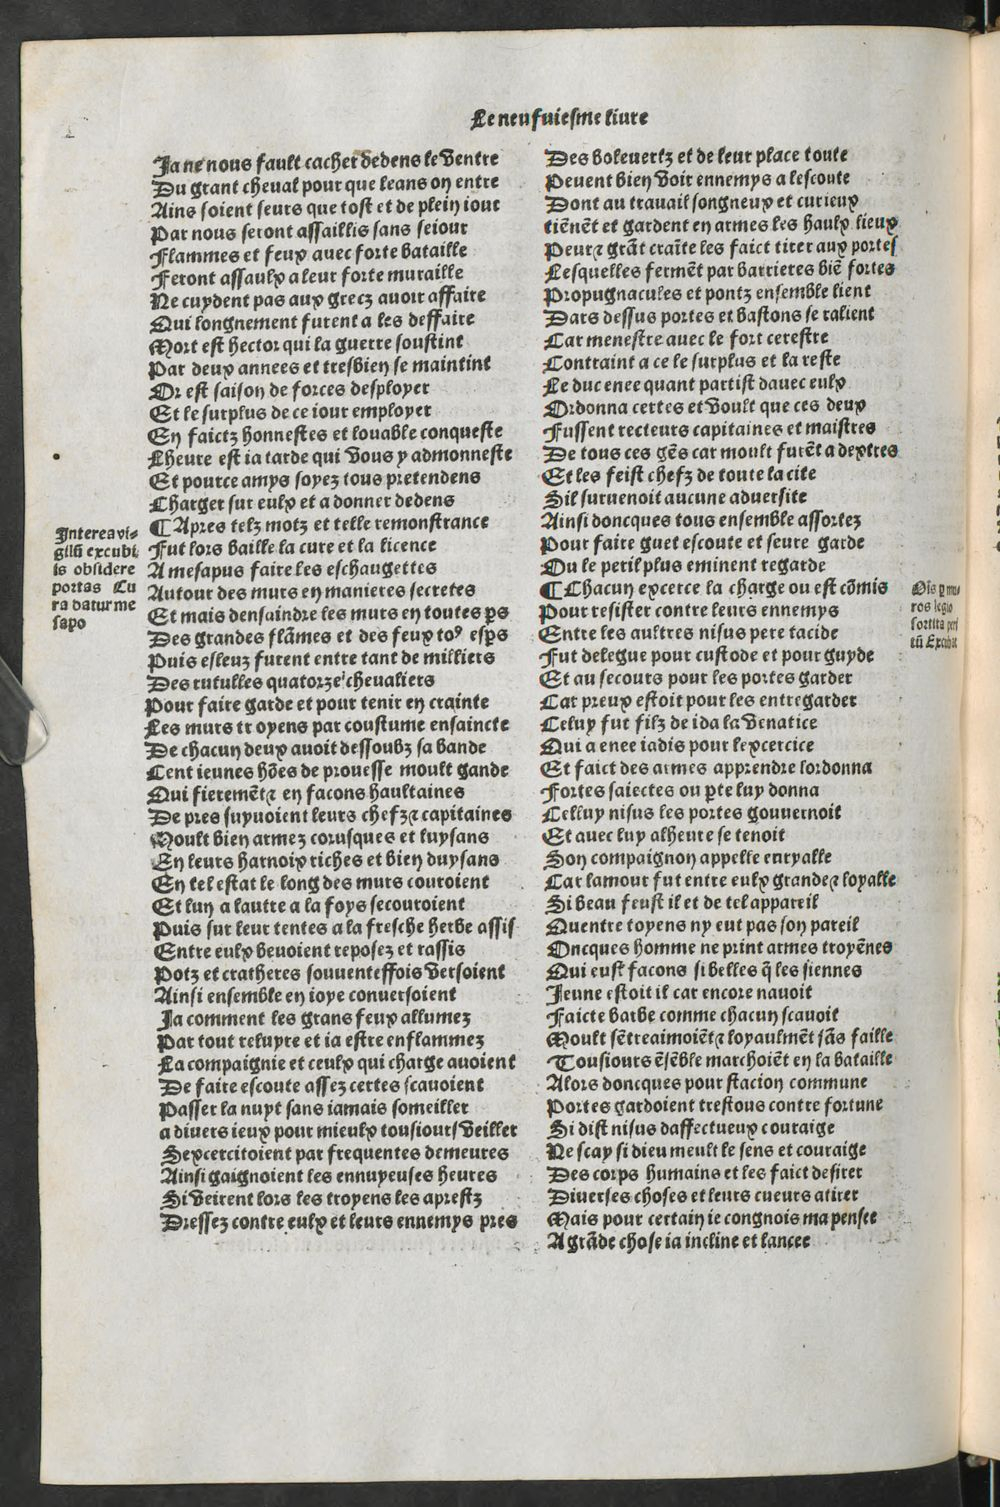 Le neufuiesme liure
Ja ne nous fault cacher dedens le ventre
Du grant cheual pour que leans on entre
Ains soient seurs que tost et de plein iour
Par nous seront assaillis sans seiour
Flammes et feux auec forte bataille
Feront assaulx a leur forte muraille
Ne cuydent pas aux grecz auoir affaire
Qui longnement furent a les deffaire
Mort est hector qui la guerre soustint
Par deux annees et tresbien se maintint
Or est saison de forces desployer
Et le surplus de ce iour employer
En faictz honnestes et louable conqueste
Lheure est ia tarde qui vous y admonneste
Et pource amys soyez tous pretendens
Charger sur eulx et a donner dedens
¶ Apres telz motz et telle remonstrance
Fut lors baille la cure et la licence
A mesapus faire les eschaugettes
Autour des murs en manieres secretes
Et mais densaindre les murs en toutes ꝑs
Des grandes flãmes et des feux toꝰ esꝑs
Puis esleuz furent entre tant de milliers
Des rutulles quatorze cheualiers
Pour faire garde et pour tenir en crainte
Les murs troyens par coustume ensaincte
De chacun deux auoit dessoubz sa bande
Cent ieunes hões de prouesse moult gande
Qui fieremẽt⁊ en facons haultaines
De pres suyuoient leurs chefz⁊ capitaines
Moult bien armez corusques et luysans
En leurs harnoix riches et bien duysans
En tel estat le long des murs couroient
Et lun a lautre a la foys secouroient
Puis sur leur tentes a la fresche herbe assis
Entre eulx beuoient reposez et rassis
Potz et cratheres souuenteffois versoient
Ainsi ensemble en ioye conuersoient
Ja comment les grans feux allumez
Par tout reluyre et ia estre enflammez
La compaignie et ceulx qui charge auoient
De faire escoute assez certes scauoient
Passer la nuyt sans iamais someiller
a diuers ieux pour mieulx tousiours veiller
Sexcercitoient par frequentes demeures
Ainsi gaignoient les ennuyeuses heures
Si veirent lors les troyens les aprestz
Dressez contre eulx et leurs ennemys pres
Interea vi-
gilũ excubi
is obsidere
portas Cu
ra datur me
sapo
Des boleuertz et de leur place toute
Peuent bien voir ennemys a lescoute
Dont au trauail songneux et curieux
tiẽnẽt et gardent en armes les haulx lieux
Peur⁊ grãt craĩte les faict tirer aux portes
Lesquelles fermẽt par barrieres biẽ fortes
Propugnacules et pontz ensemble lient
Dars dessus portes et bastons se ralient
Car menestre auec le fort cerestre
Contraint a ce le surplus et la reste
Le duc enee quant partist dauec eulx
Ordonna certes et voult que ces deux
Fussent recteurs capitaines et maistres
De tous ces gẽs car moult furẽt a dextres
Et les feist chefz de toute la cite
Sil suruenoit aucune aduersite
Ainsi doncques tous ensemble assortez
Pour faire guet escoute et seure garde
Ou le peril plus eminent regarde
¶ Chacun excerce la charge ou est cõmis
Pour resister contre leurs ennemys
Entre les aultres nisus pere tacide
Fut delegue pour custode et pour guyde
Et au secours pour les portes garder
Car preux estoit pour les entregarder
Celuy fut filz de ida la venatice
Qui a enee iadis pour lexcercice
Et faict des armes apprendre lordonna
Fortes saiectes ou ꝑte luy donna
Celluy nisus les portes gouuernoit
Et auec luy alheure se tenoit
Son compaignon appelle euryalle
Car lamour fut entre eulx grande⁊ loyalle
Si beau feust il et de tel appareil
Quentre toyens ny eut pas son pareil
Oncques homme ne print armes troyẽnes
Qui eust facons si belles q̃ les siennes
Jeune estoit il car encore nauoit
Faicte barbe comme chacun scauoit
Moult sẽtreaimoiẽt⁊ loyaulmẽt sãs faille
Tousiours ẽsẽble marchoiẽt en la bataille
Alors doncques pour stacion commune
Portes gardoient trestous contre fortune
Si dist nisus daffectueux couraige
Ne scay si dieu meult le sens et couraige
Des corps humains et les faict desirer
Diuerses choses et leurs cueurs atirer
Mais pour certain ie congnois ma pensee
A grãde chose ia incline et lancee
Oĩs ꝑ mu-
ros legio
sortita peri